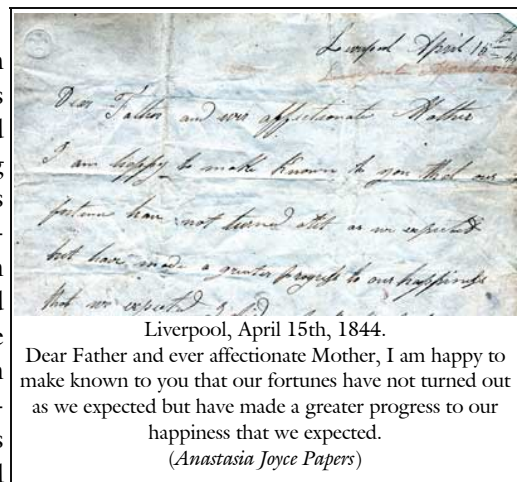 Liverpool April 15th
Dear Father and ever affectionate Mother
I am happy to make Known to you that our
fortune have not turned out as we expected
but have made a greater progress to our happiness
that we expected
Liverpool, April 15th, 1844.
Dear Father and ever affectionate Mother, I am happy to
make known to you that our fortunes have not turned out
as we expected but have made a greater progress to our
happiness that we expected.
(Anastasia Joyce Papers)